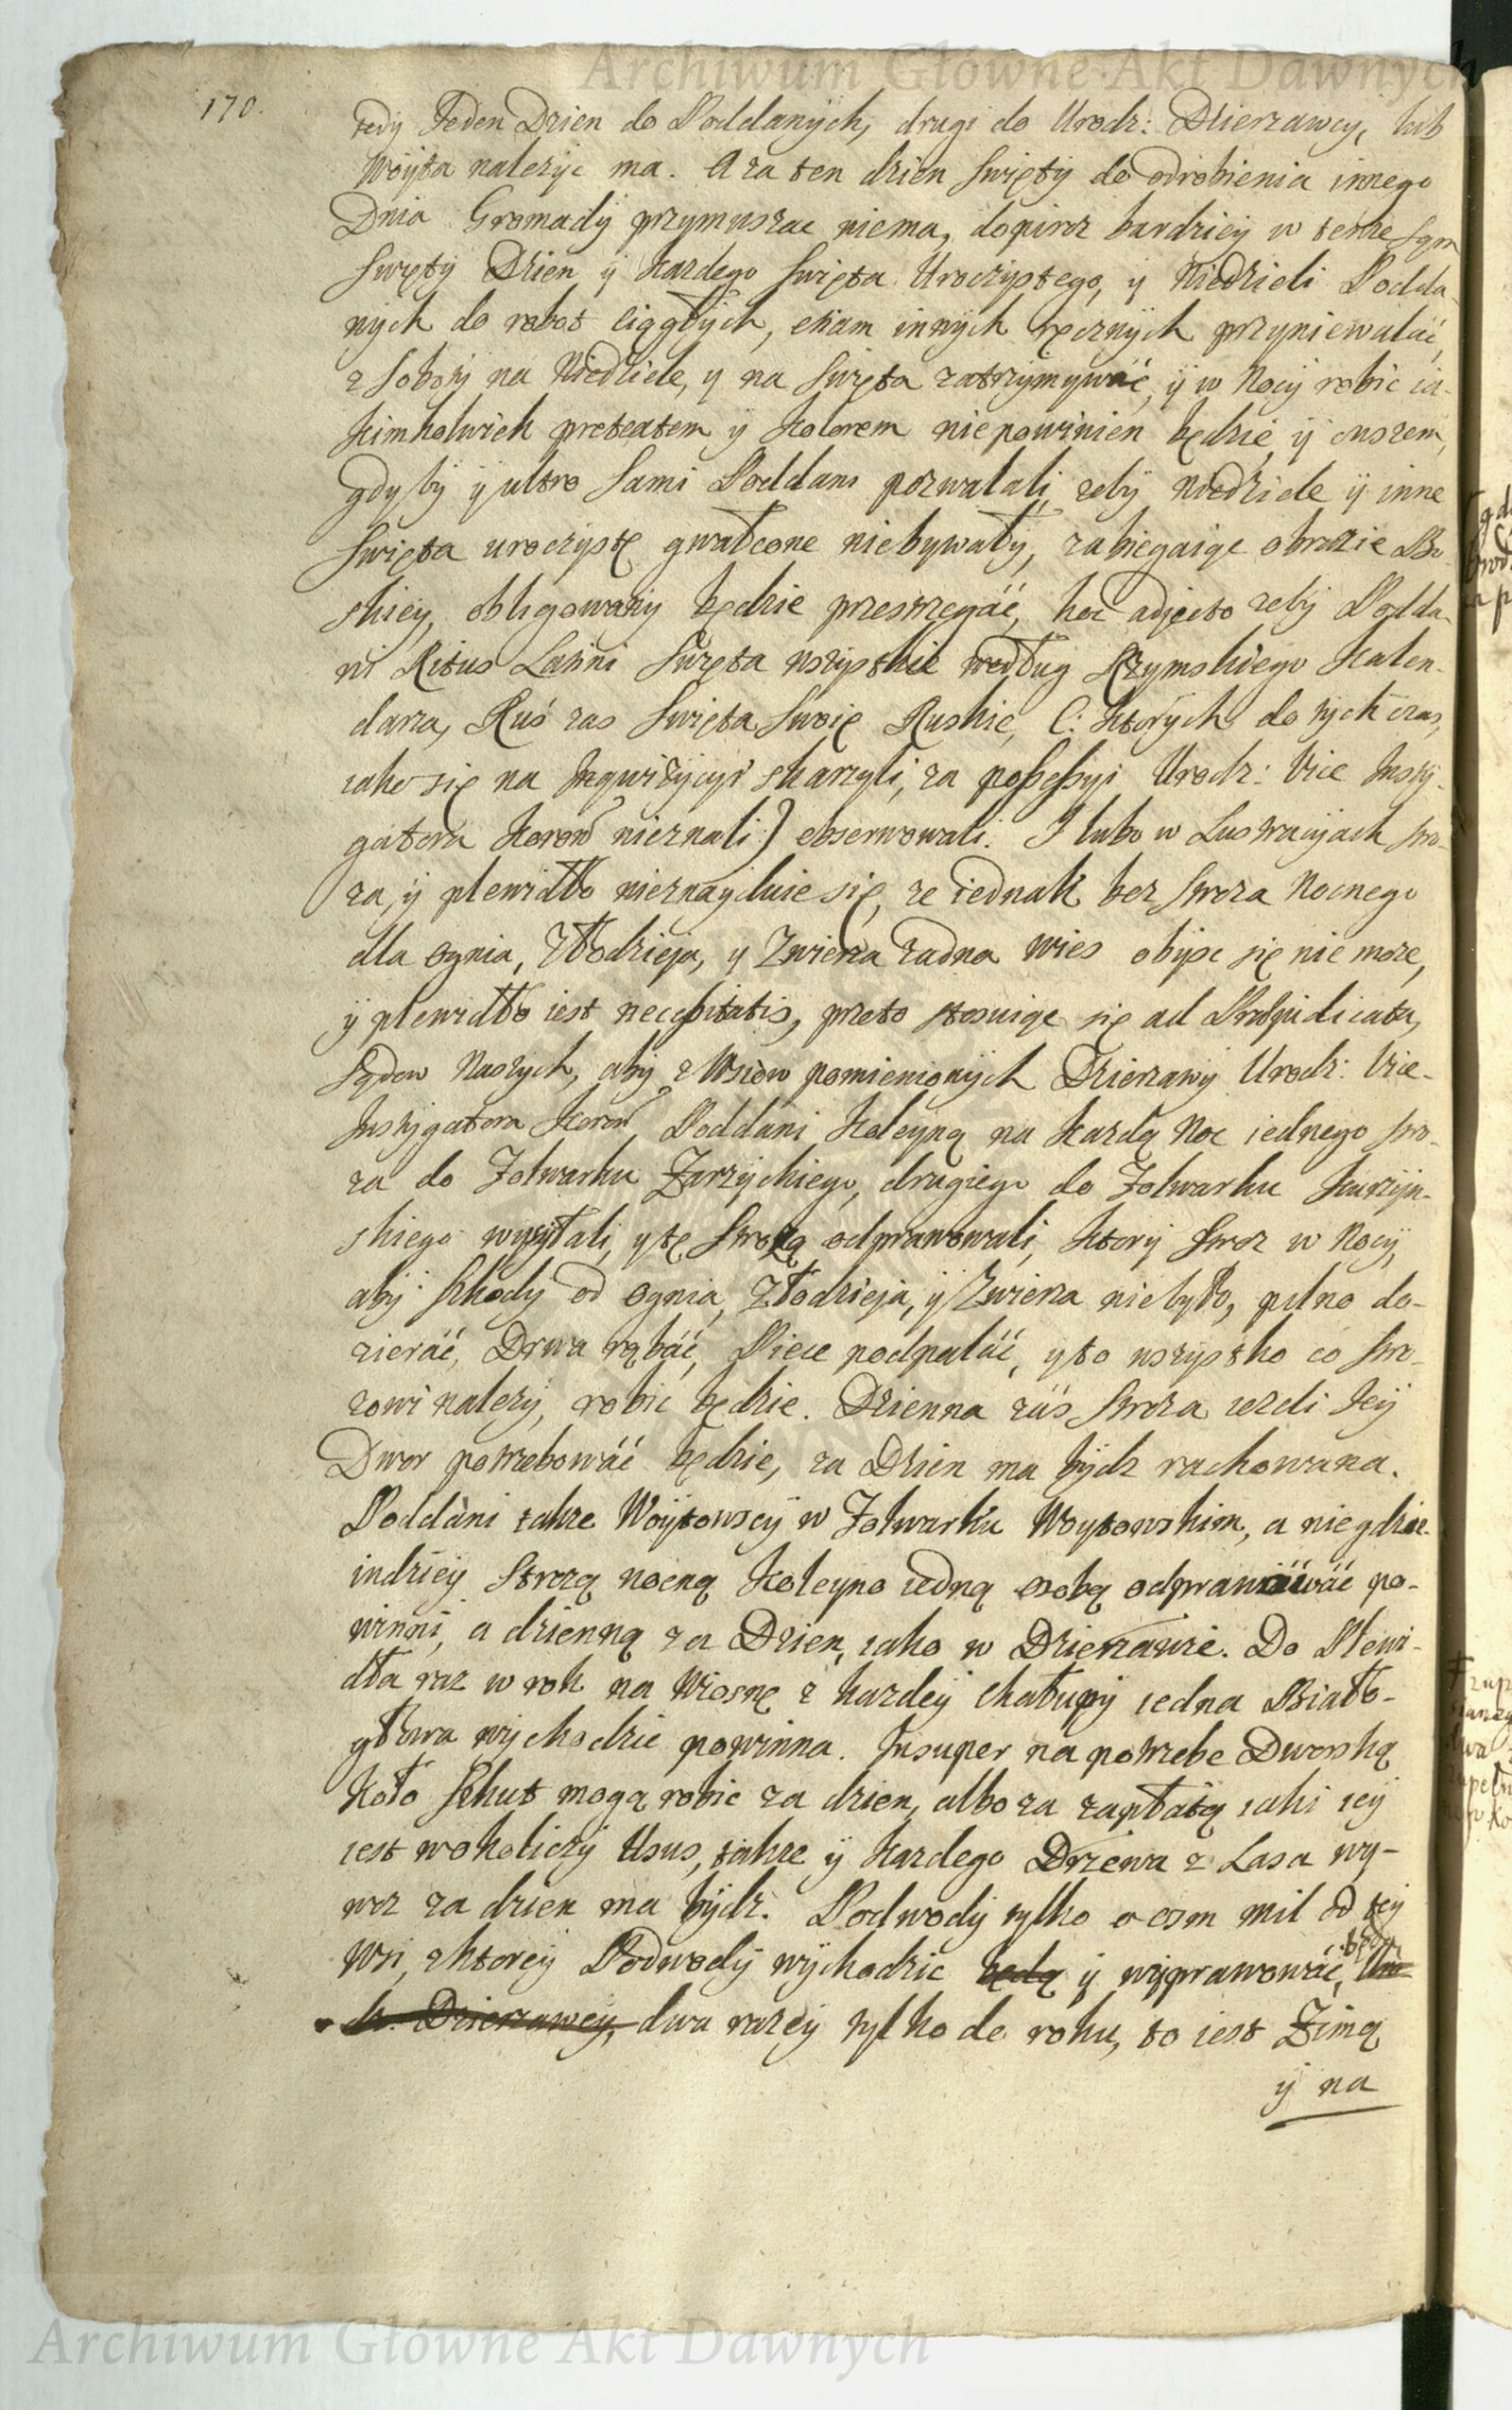 Archiwum Główne Akt Dawnych
170.
tedy Jeden Dzien do Poddanych, drugi do Urodz: Dzierzawcy, lub
Woyta nalezyc ma. A za ten dzien Swięty do odrobienia innego
Dnia Gromady przymuszac niema, dopiroz bardziey w tenze sąm
Swięty Dzien y kazdego Swięta Uroczystego, y Niedzieli Podda-
nych do robot ciągłych, etiam innych ręcznych przyniewalać,
z Soboty na Niedziele, y na Swięta zatrzymywać, y w Nocy robic ia-
kimkolwiek pretextem y kolorem niepowinien będzie, y owszem,
gdyby y ultro Sami Poddani pozwalali, zeby Niedziele y inne
Swięta uroczystę gwałcone niebywały, zabiegaiąc obrazie Bo-
skiey, obligowany będzie przestrzegáć, hoc adjecto zeby Podda-
ni Ritus Latini Swięta wszystkie według Rzymskiego Kalen-
darza, Ruś zas Swięta Swoię Ruskie, (: których do tych czas,
iako się na Inqwizycyi skarzyli, za possessyi Urodz: Vice Insty-
gatora Koron nieznali:) obserwowali. I lubo w Lustracyach stro-
za, y plewidło nieznayduie się, ze iednak bez stroza Nocnego
dla Ognia, Złodzieja, y Zwierza zadna wies obyśc się nie moze,
y plewidło iest necessitatis, przeto stosuiąc się ad Præjudicata,
Sądow Naszych, aby z Wsiow pomienionych Dzierzawy Urodz: Vice-
Instygatora Koron Poddani Koleyną na kazdą Noc iednego stro-
za do Folwarku Zarzyckiego, drugiego do Folwarku Kurzyn-
skiego wysyłali, y tę Strozą odprawowali, ktory stroz w Nocy,
aby szkody od Ognia, Złodzieja, y Zwierza niebyło, pilno do-
zieráć, Drwa rąbáć, Piece podpaláć, y to wszystko co stro-
zowi nalezy, robic będzie. Dzienna záś stroza iezeli Jey
Dwor potrzebowáć będzie, za Dzien ma bydz rachowana.
Poddáni takze Woytowscy w Folwarku Woytowskim, a nie gdzie-
indziey Strozą nocną Koleyno iedną osobą odprawowáć po-
winni, a dzienną za Dzien, iako w Dzierzawie. Do Plewi-
dła raz w rok na Wiosnę z kazdey chałupy iedna Biało-
głowa wychodzic powinna. Insuper na potrzebe Dworską
koło szkut mogą robic za dzien, albo za zapłatą iaki iey
iest w okoliczy Usus, tákze y kazdego Drzewa z Lasa wy-
woz za dzien ma bydz. Podwody tylko o osm mil od tey
Wsi, z ktorey Podwody wychodzic będą y wyprawowáć, będą Uro-
dz: Dzierzawcy, dwa razey tylko do roku, to iest Zimą
y na
Archiwum Główne Akt Dawnych